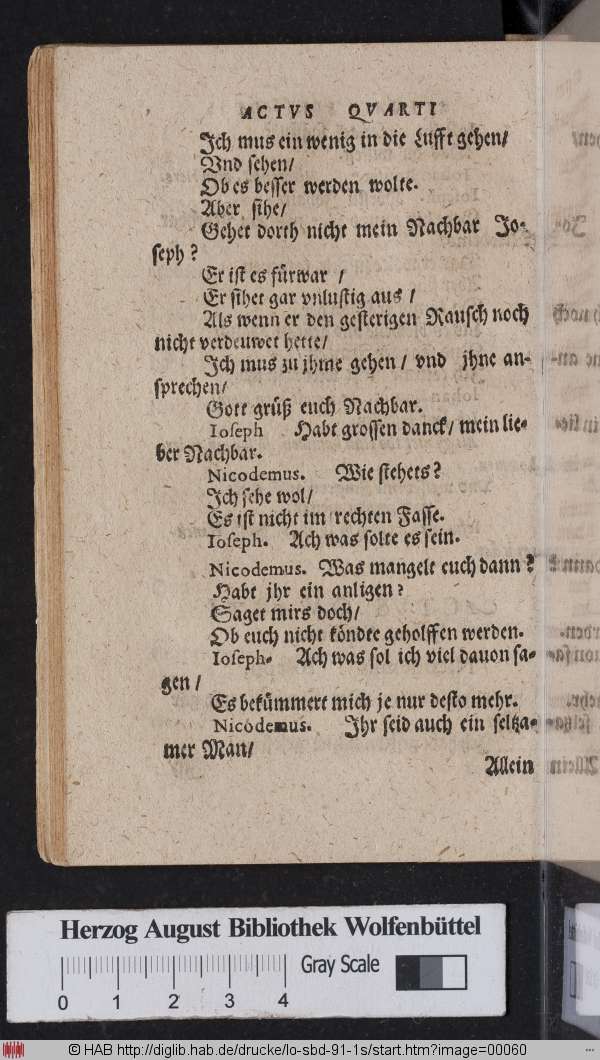 ACTVS QVARTI
Ich mus ein wenig in die Lufft gehen/
Vnd sehen/
Ob es besser werden wolte.
Aber sihe/
Gehet dorth nicht mein Nachbar Jo-
seph?
Er ist es fürwar /
Er sihet gar vnlustig aus /
Als wenn er den gesterigen Rausch noch
nicht verdeuwet hette/
Ich mus zu jhme gehen / vnd jhne an-
sprechen/
Gott grüß euch Nachbar.
Ioseph Habt grossen danck/ mein lie-
ber Nachbar.
Nicodemus. Wie stehets?
Ich sehe wol/
Es ist nicht im rechten Fasse.
Ioseph. Ach was solte es sein.
Nicodemus. Was mangelt euch dann?
Habt jhr ein anligen?
Saget mirs doch/
Ob euch nicht köndte geholffen werden.
Ioseph. Ach was sol ich viel dauon sa-
gen /
Es bekümmert mich je nur desto mehr.
Nicodemus. Ihr seid auch ein seltza-
mer Man/
Allein
Herzog August Bibliothek Wolfenbüttel
Gray Scale
0 1 2 3 4
© HAB http://diglib.hab.de/drucke/lo-sbd-91-1s/start.htm?image=00060